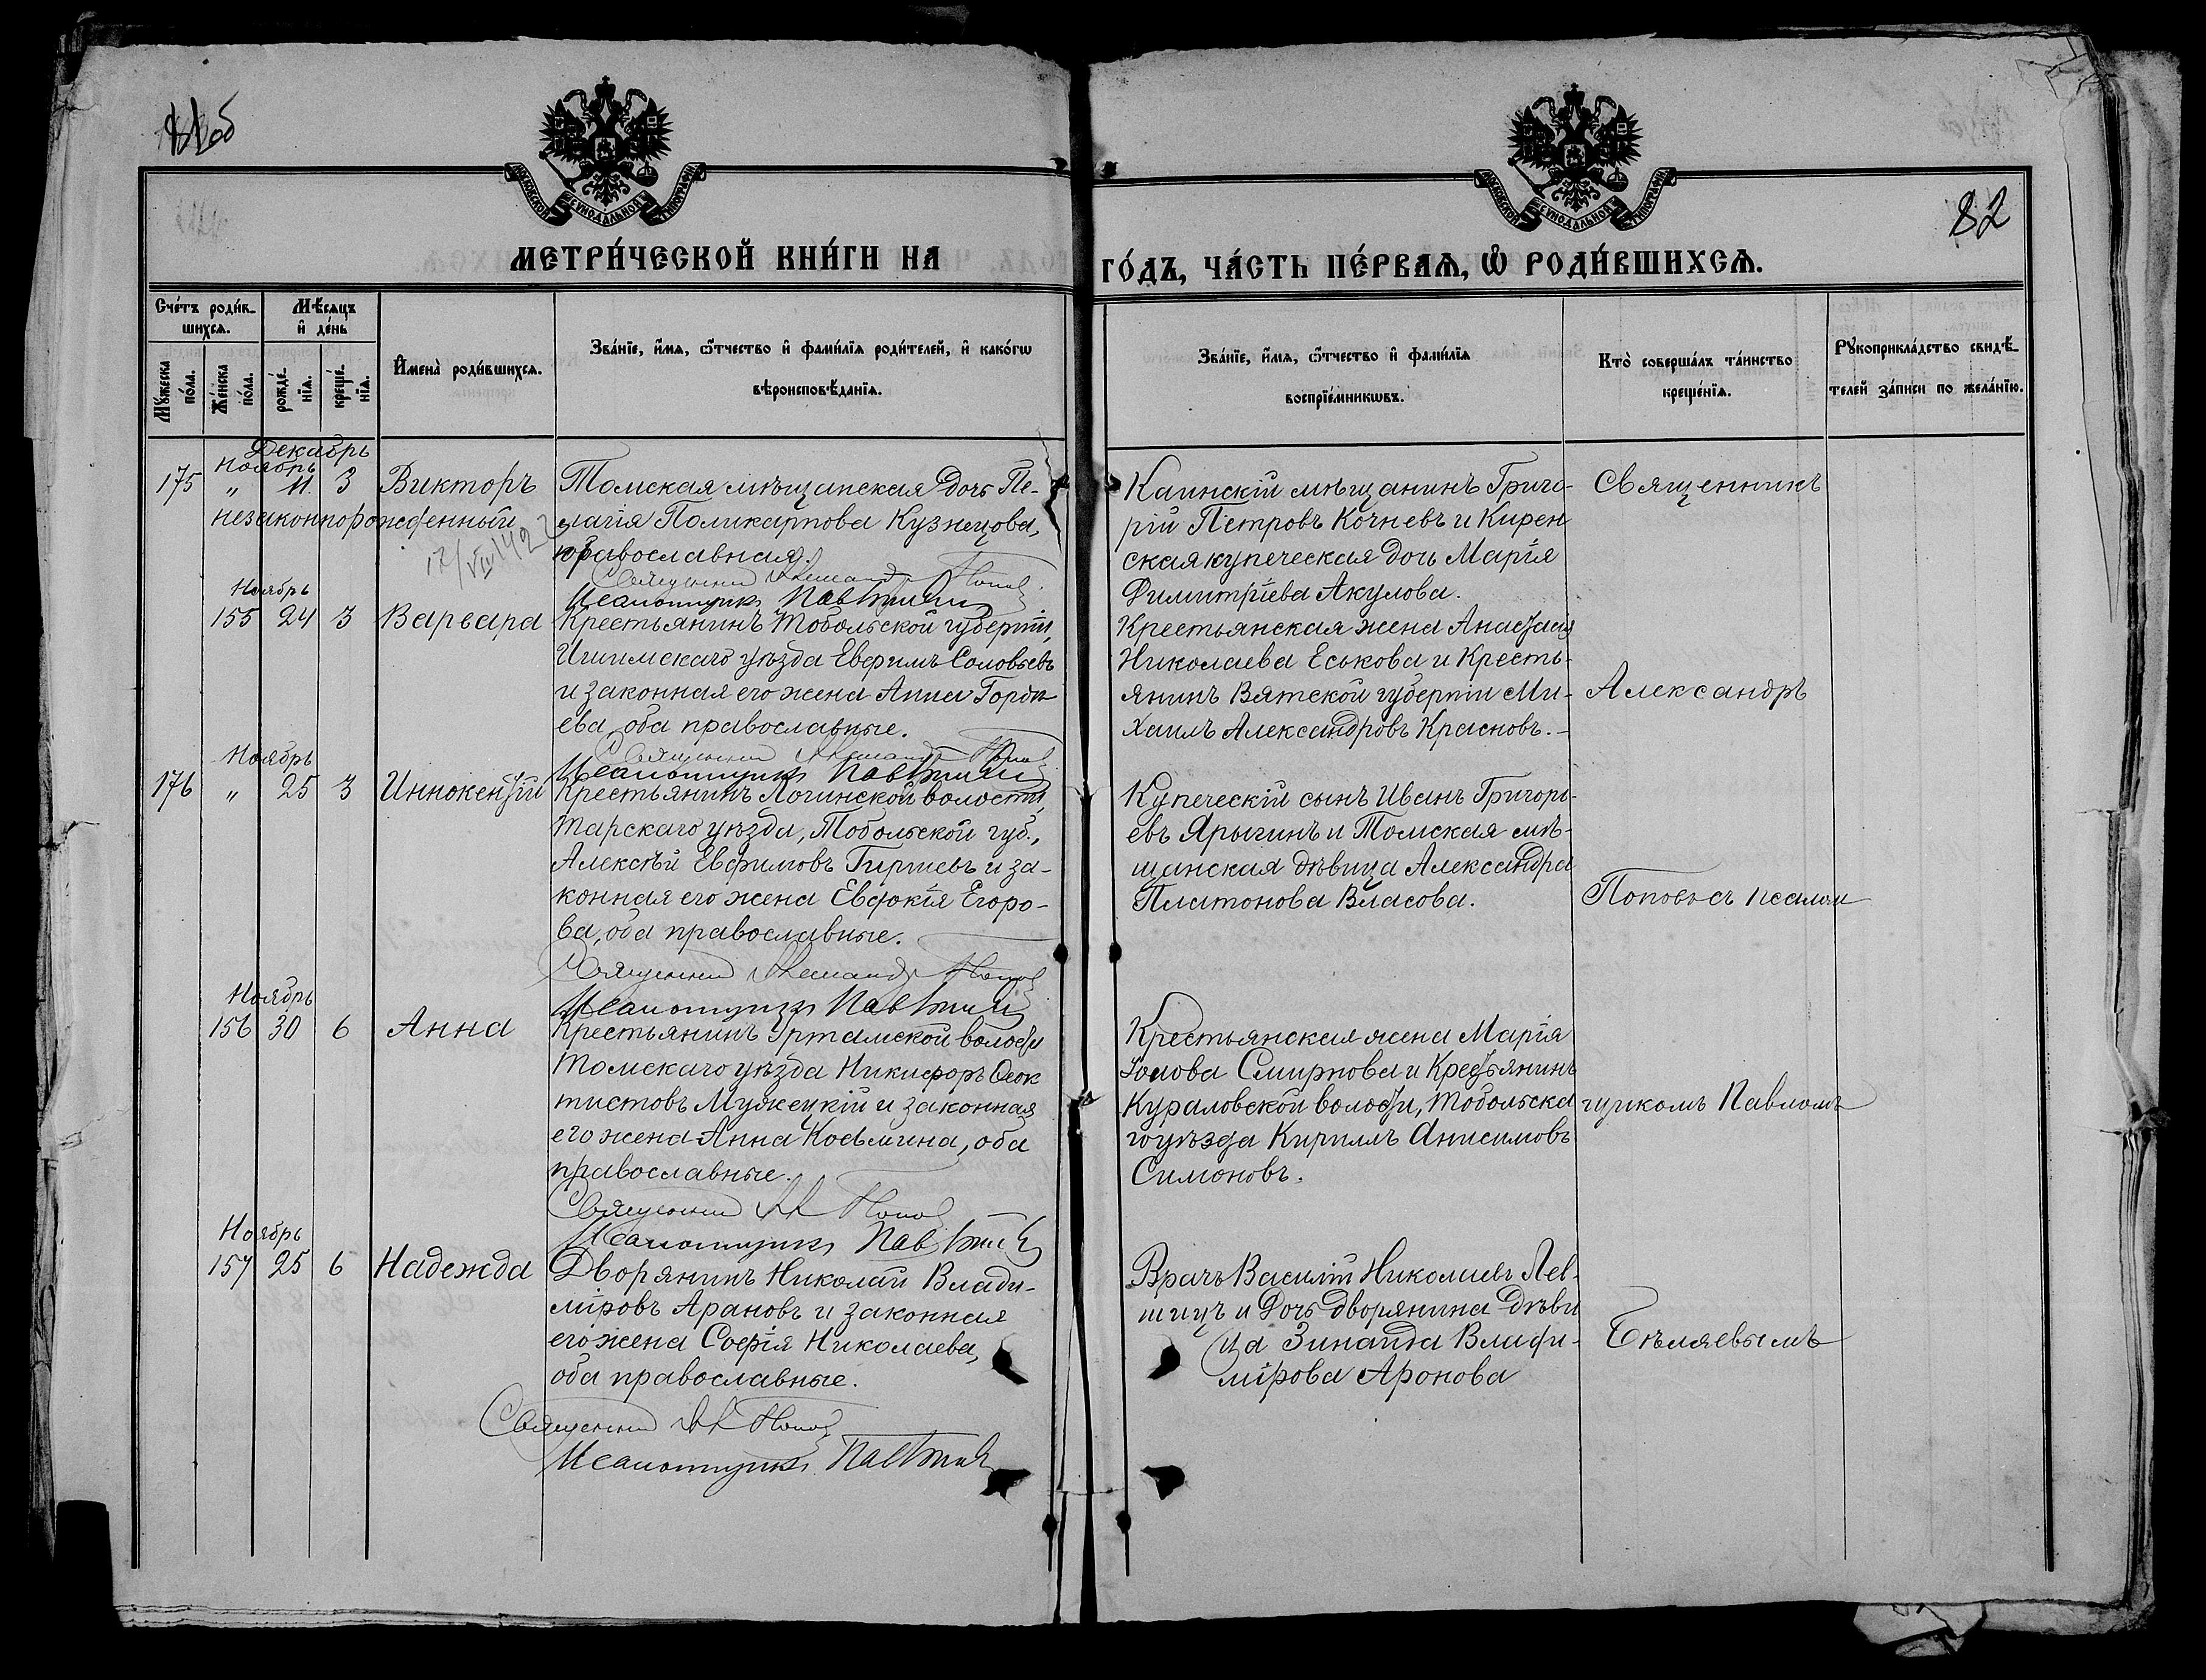 81об
МОСКОВСКОЙ СѴНОДАЛЬНОЙ ТИПОГРАФІИ
МОСКОВСКОЙ СѴНОДАЛЬНОЙ ТИПОГРАФІИ
82
МЕТРИ́ЧЕСКОЙ КНИ́ГИ НА
ГО́ДЪ, ЧА́СТЬ ПЕ́РВАѦ, Ѡ РОДИ́ВШИХСѦ.
Сче́тъ роди́в-
шихсѧ.
Мѣ́сѧцъ
и҆ де́нь
Мꙋ́жеска
по́ла.
Же́нска
по́ла.
рожде́-
нїѧ.
креще́-
нїѧ.
И҆мена̀ роди́вшихсѧ.
Зва́нїе, и҆́мѧ, ѻ҆́тчество и҆ фами́лїѧ роди́телей, и҆ како́гѡ
вѣроисповѣ́данїѧ.
Зва́нїе, и҆́мѧ, ѻ҆́тчество и҆ фами́лїѧ
воспрїе́мникѡвъ.
Кто̀ соверша́лъ та́инство
креще́нїѧ.
Рꙋкоприкла́дство свидѣ́-
телей за́писи по жела́нїю.
Декабрь
Ноябрь
175 " 11. 3 Викторъ
незаконнорожденный
Томская мѣщанская дочь Пе-
лагія Поликарпова Кузнецова,
православная.
Священникъ Александръ Поповъ
Псаломщикъ Пав Бѣляевъ
Каинскій мѣщанинъ Григо-
рій Петровъ Кочневъ и Кирен
ская купеческая дочь Марія
Димитріева Акулова.
Священникъ
Ноябрь
155 24 3 Варвара
Крестьянинъ Тобольской губерніи,
Ишимскаго уѣзда Ефимъ Соловьевъ
и законная его жена Анна Горди
ева, оба православные.
Священникъ Александръ Поповъ
Псаломщикъ Пав Бѣляевъ
Крестьянская жена Анастасія
Николаева Еськова и Кресть-
янинъ Вятской губерніи Ми-
хаилъ Александровъ Красновъ.
Александръ
Ноябрь
176 " 25 3 Иннокентій
Крестьянинъ Логинской волости,
Тарскаго уѣзда, Тобольской губ.,
Алексѣй Евфимовъ и за-
конная его жена Евдокія Егоро-
ва, оба православные.
Священникъ Александръ Поповъ
Псаломщикъ Пав Бѣляевъ
Купеческій сынъ Иванъ Григорь-
евъ Ярыгинъ и Томская мѣ-
щанская дѣвица Александра
Платонова Власова.
Поповъ съ псалом
Ноябрь
156 30 6 Анна
Крестьянинъ Уртамской волости
Томскаго уѣзда Никифоръ Ѳеок
тистовъ Мужецкій и законная
его жена Анна Косьмина, оба
православные.
Священникъ Ал Поповъ
Псаломщикъ Пав Бѣляевъ
Крестьянская жена Марія
Смирнова и Крестьянинъ
волости, Тобольска
го уѣзда Кириллъ Анисимовъ
Симоновъ.
щикомъ Павломъ
Ноябрь
157 25 6 Надежда
Дворянинъ Николай Влади-
міровъ Арановъ и законная
его жена Софія Николаева,
оба православные.
Священникъ Ал Поповъ
Псаломщикъ Пав Бѣляевъ
Врачъ Василій Николаевъ Лев-
шицъ и Дочь дворянина дѣви
ца Зинаида Влади-
мірова Аронова
Бѣляевымъ